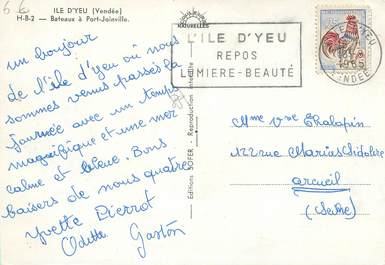 6 6
ILE D'YEU (Vendée)
H-B-2 — Bateaux à Port-Joinville.
NATURELLES
L'ILE D'YEU
REPOS
LUMIERE-BEAUTÉ
un bonjour
de l'île d'yeu où nous
sommes venus passés la
journée avec un temps
magnifique et une mer
calme et bleue. Bons
baisers de nous quatre
Yvette Pierrot
Odette Gaston
Editions SOFER - Reproduction interdite
D'YEU
1965
VENDÉE
Mme Vve Chalopin
122 rue Marius
arcueil
(Seine)